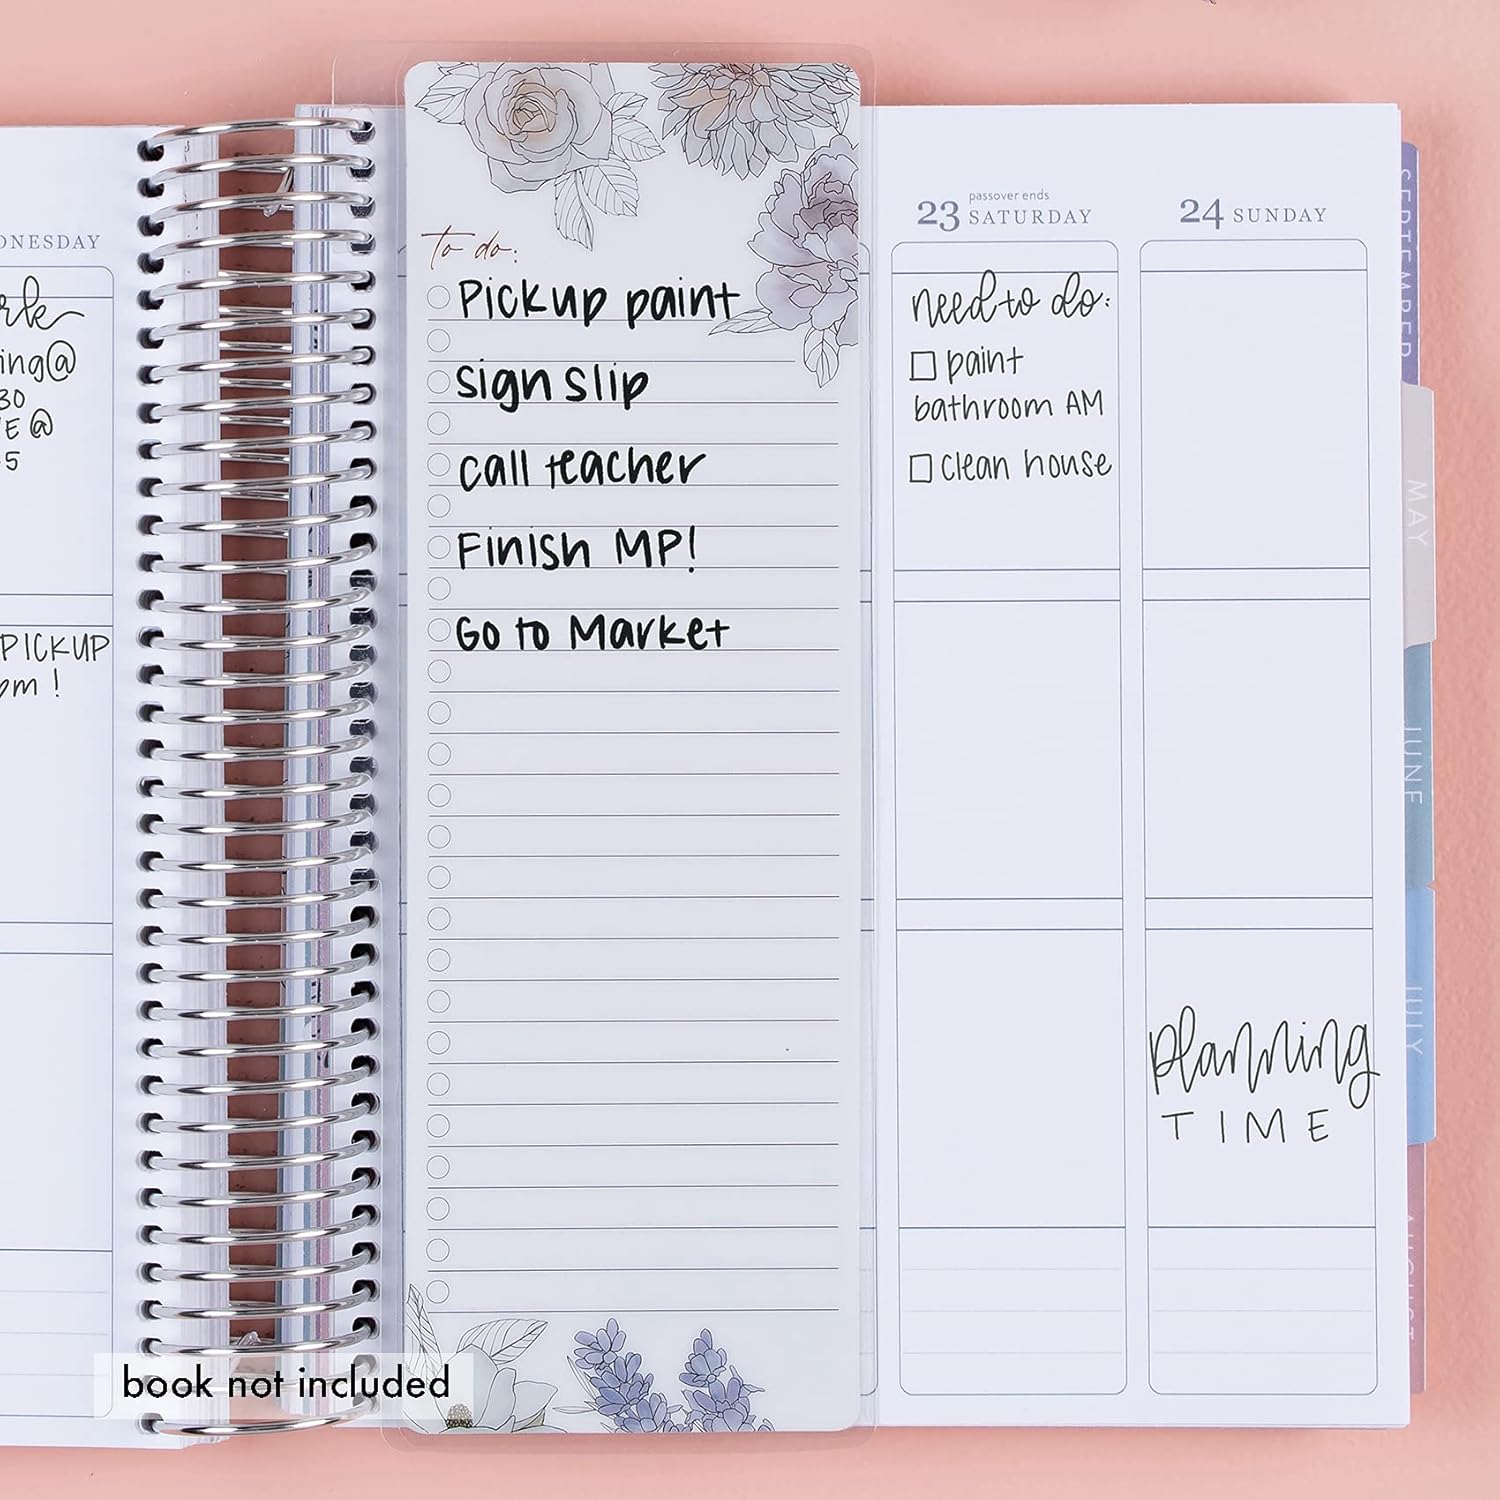 To do:
Pickup paint
Sign slip
call teacher
Finish MP!
Go to Market
passover ends
23 SATURDAY
need to do:
paint
bathroom AM
clean house
24 SUNDAY
planning
TIME
PICKUP
SEPTEMBER
MAY
JUNE
JULY
AUGUST
book not included